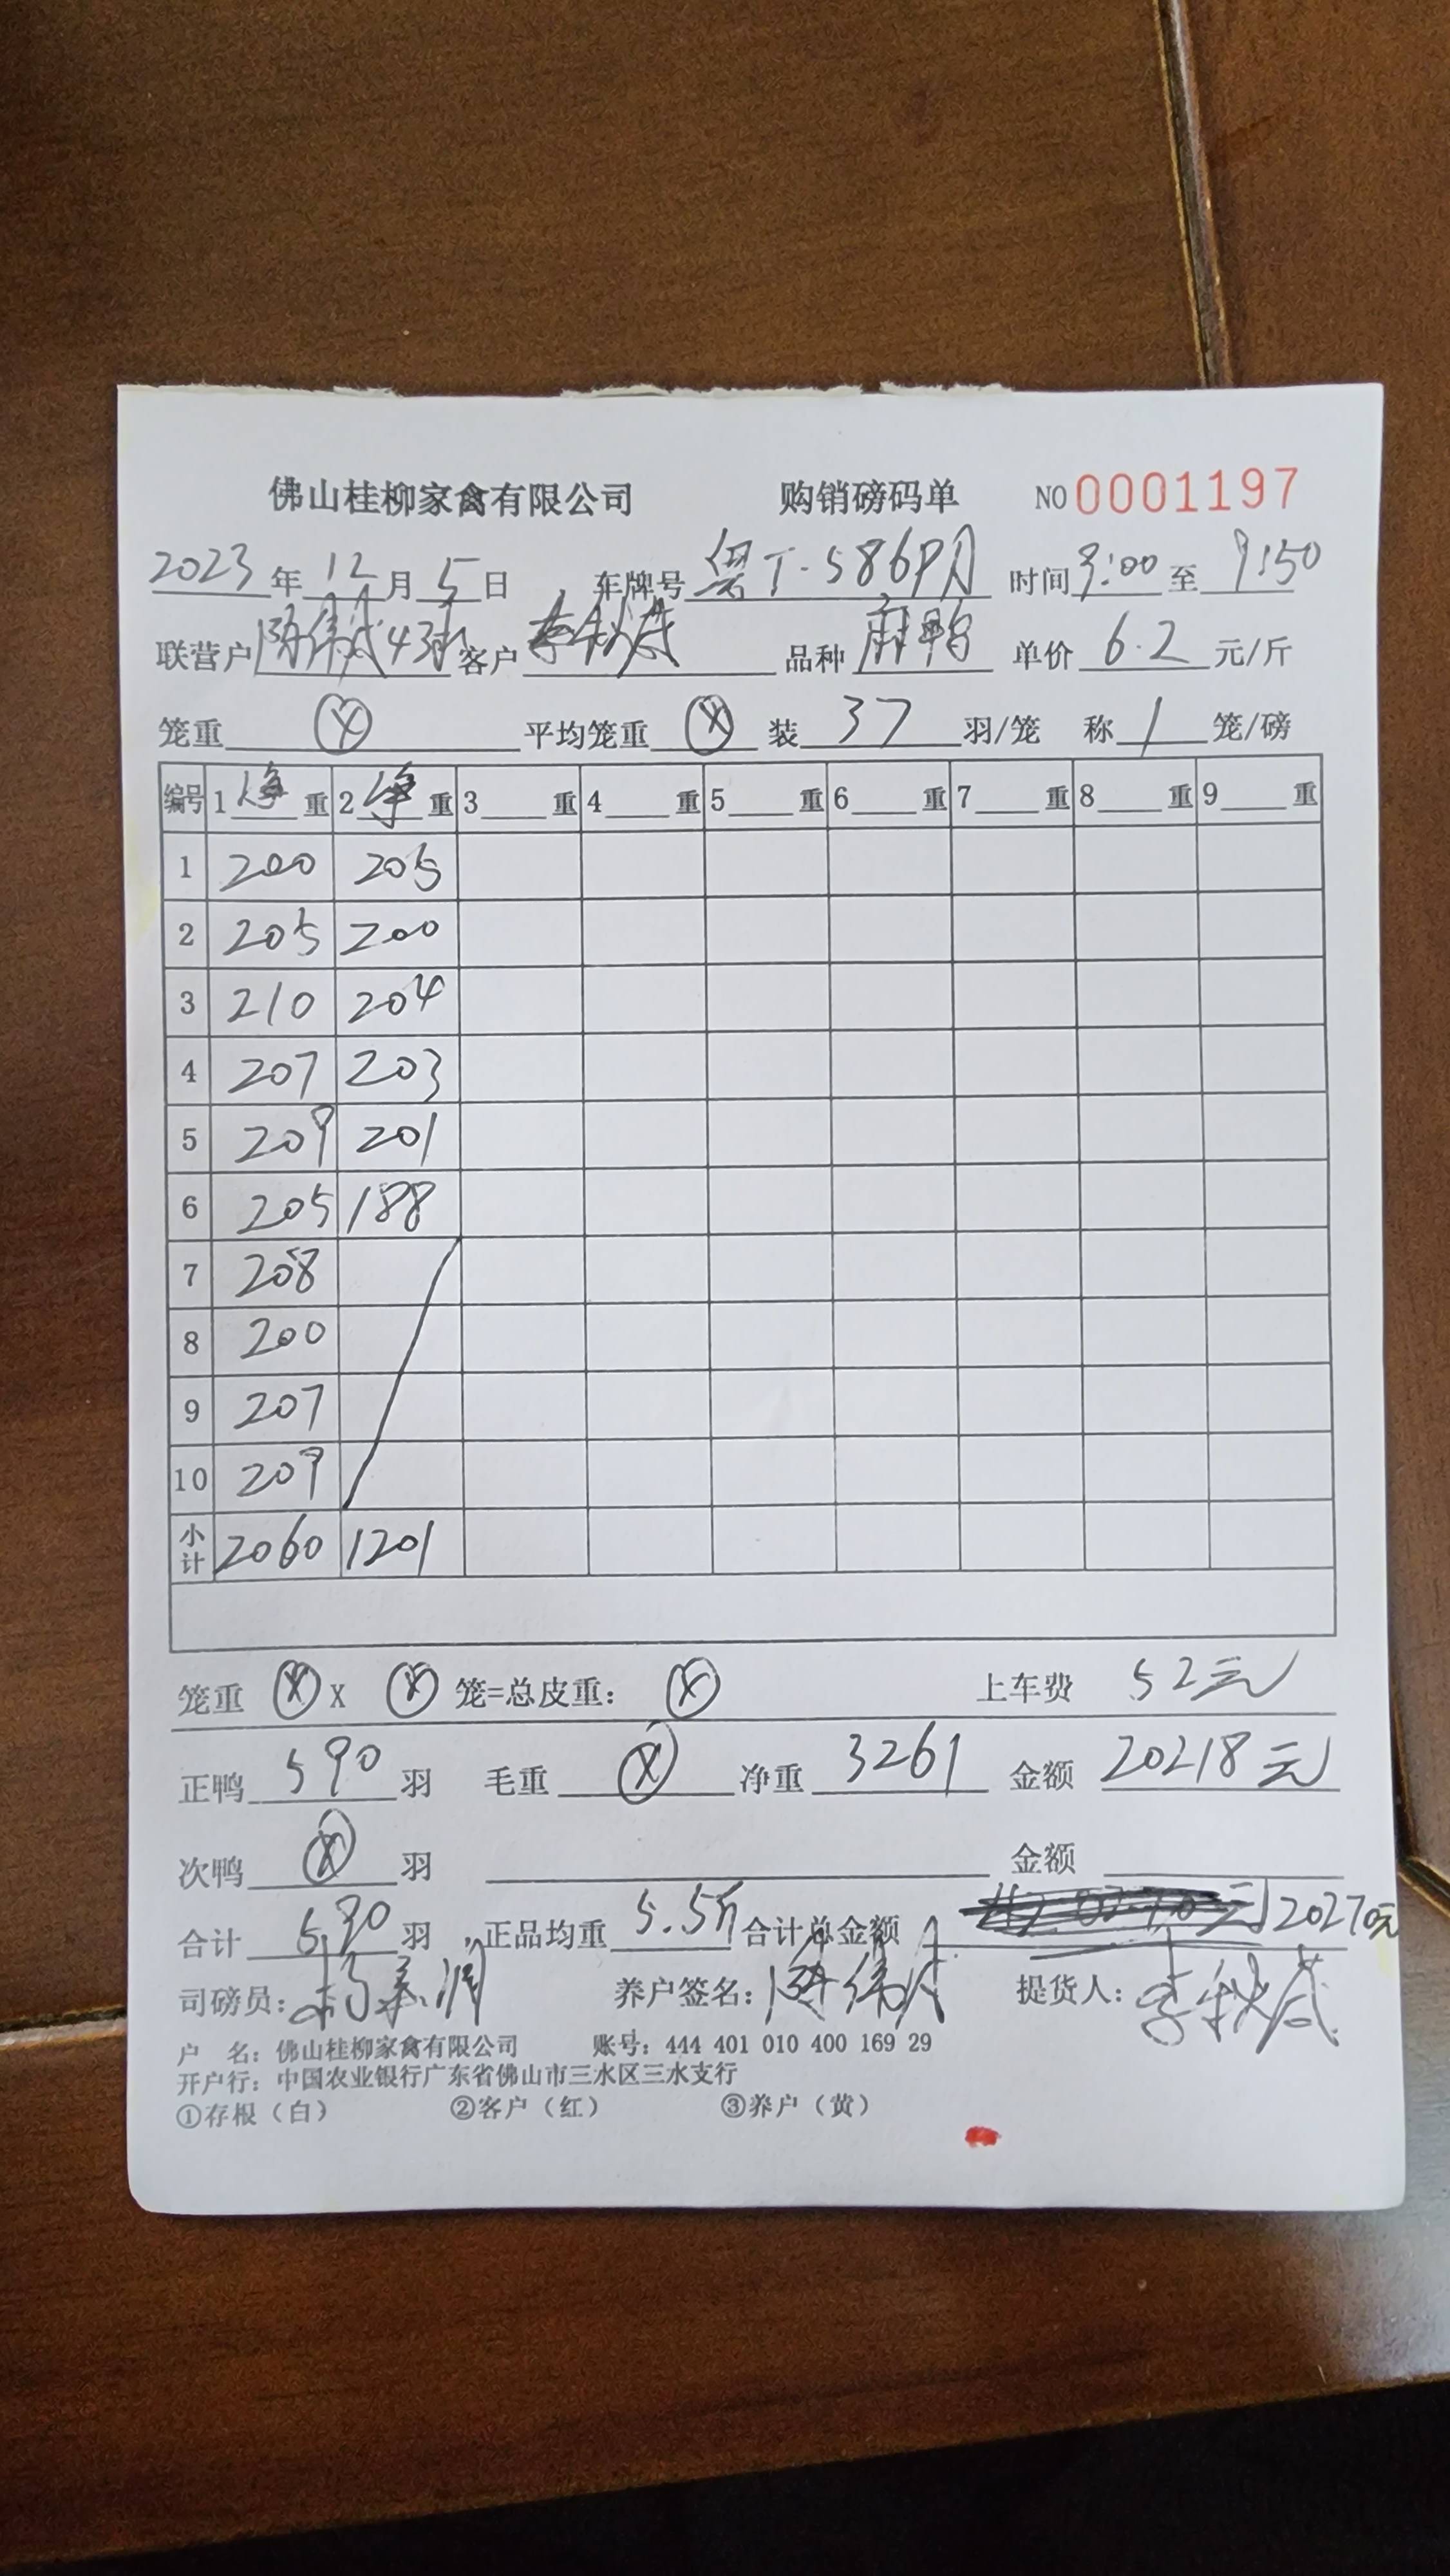 佛山桂柳家禽有限公司 购销磅码单 NO 0001197
2023年12月5日 车牌号 粤T·586P月 时间 9:00 至 9:50
联营户 陈伟成43承 客户 李秋茂 品种 麻鸭 单价 6.2 元/斤
笼重 Ⓧ 平均笼重 Ⓧ 装 37 羽/笼 称 1 笼/磅
编号 1 净 重 2 净 重 3 重 4 重 5 重 6 重 7 重 8 重 9 重
1 200 205
2 205 200
3 210 204
4 207 203
5 209 201
6 205 188
7 208
8 200
9 207
10 209
小计 2060 1201
笼重 Ⓧ X Ⓧ 笼=总皮重： Ⓧ 上车费 52元
正鸭 590 羽 毛重 Ⓧ 净重 3261 金额 20218元
次鸭 Ⓧ 羽 金额
合计 590 羽，正品均重 5.5斤 合计总金额 20270元
司磅员： 养户签名：陈伟成 提货人：李秋茂
户 名：佛山桂柳家禽有限公司 账号：444 401 010 400 169 29
开户行：中国农业银行广东省佛山市三水区三水支行
①存根（白） ②客户（红） ③养户（黄）